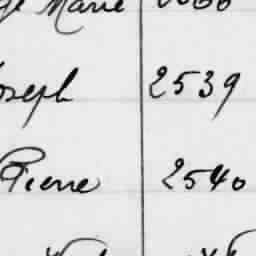 Marie
oseph 2539
Pierre 2540